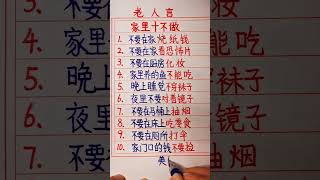 老人言
家里十不做
1. 不要在家烧纸钱
2. 不要在家看恐怖片
3. 不要在厨房化妆
4. 家里养的鱼不能吃
5. 晚上睡觉不穿袜子
6. 夜里不要对着镜子
7. 不要在马桶上抽烟
8. 不要在床上吃零食
9. 不要在厕所打伞
10. 家门口的钱不要捡